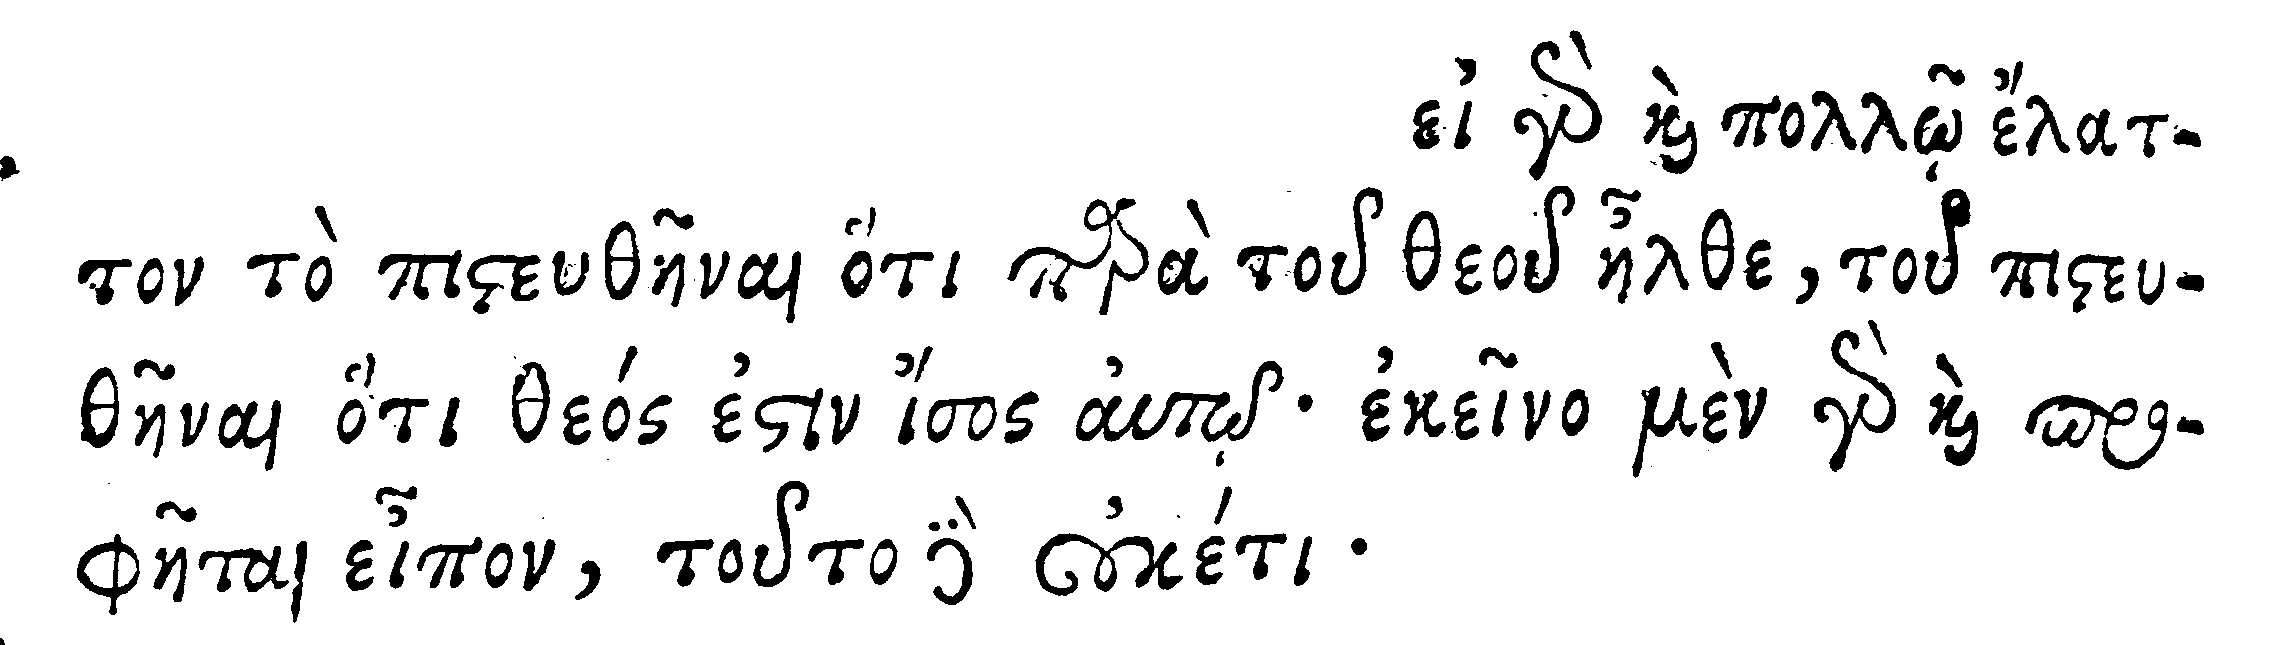 εἰ γὰρ καὶ πολλῷ ἔλατ-
τον τὸ πιστευθῆναι ὅτι παρὰ τοῦ θεοῦ ἦλθε, τοῦ πιστευ-
θῆναι ὅτι θεός ἐστιν ἴσος αὐτῷ· ἐκεῖνο μὲν γὰρ καὶ προ-
φῆται εἶπον, τοῦτο δὲ οὐκέτι·